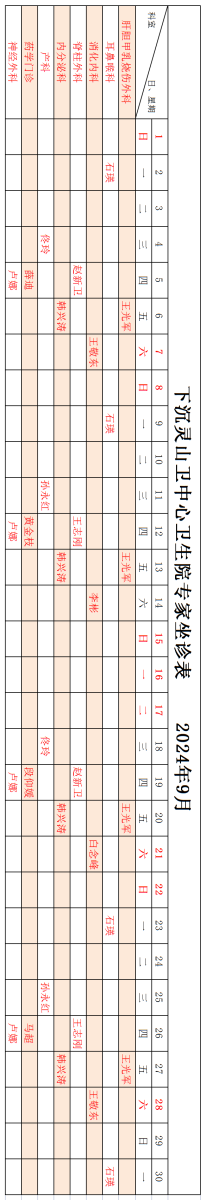 下沉灵山卫中心卫生院专家坐诊表 2024年9月
日、星期 1 2 3 4 5 6 7 8 9 10 11 12 13 14 15 16 17 18 19 20 21 22 23 24 25 26 27 28 29 30
科室 日 一 二 三 四 五 六 日 一 二 三 四 五 六 日 一 二 三 四 五 六 日 一 二 三 四 五 六 日 一
肝胆甲乳烧伤外科 王光军 王光军 王光军 王光军
耳鼻喉科 石瑛 石瑛 石瑛 石瑛
消化内科 王敬东 李彬 白念峰 王敬东
脊柱外科 赵新卫 王志刚 赵新卫 王志刚
内分泌科 韩兴涛 韩兴涛 韩兴涛 韩兴涛
产科 佟玲 孙永红 佟玲 孙永红
药学门诊 薛迪 黄金枝 段仰媛 马超
神经外科 卢娜 卢娜 卢娜 卢娜